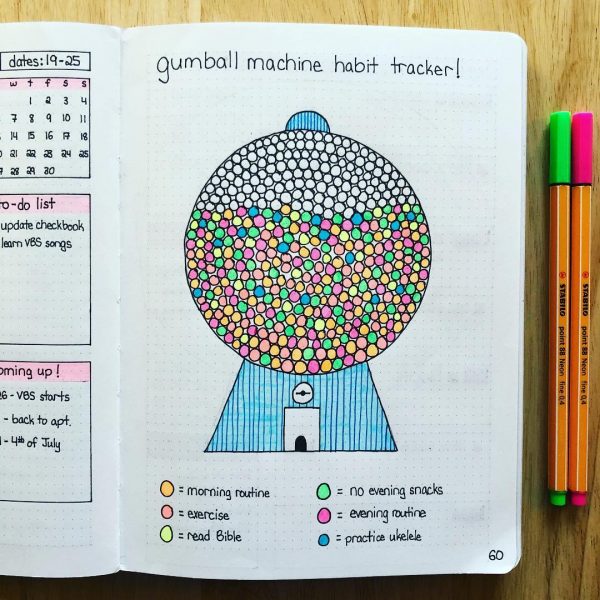 dates: 19-25
w t f s s
1 2 3 4
7 8 9 10 11
14 15 16 17 18
21 22 23 24 25
28 29 30
to-do list
update checkbook
learn VBS songs
oming up!
26 - VBS starts
- back to apt.
- 4th of July
gumball machine habit tracker!
= morning routine
= exercise
= read Bible
= no evening snacks
= evening routine
= practice ukelele
60
STABILO point 88 Neon fine 0,4
STABILO point 88 Neon fine 0,4